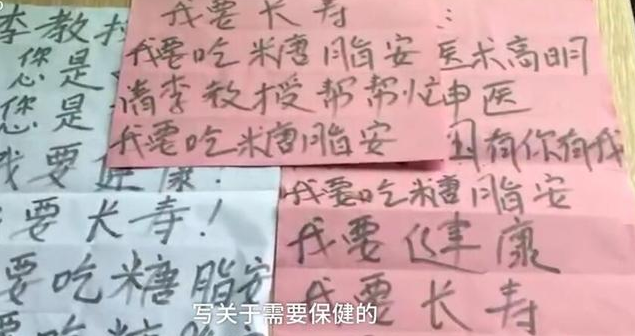 李教授
您是
您是
我要健康!
要长寿!
要吃糖脂安
要吃糖
我要长寿
我要吃糖脂安
请李教授帮帮忙
我要吃糖脂安
医术高明
神医
有你有我
我要吃糖脂安
我要健康
我要长寿
写关于需要保健的